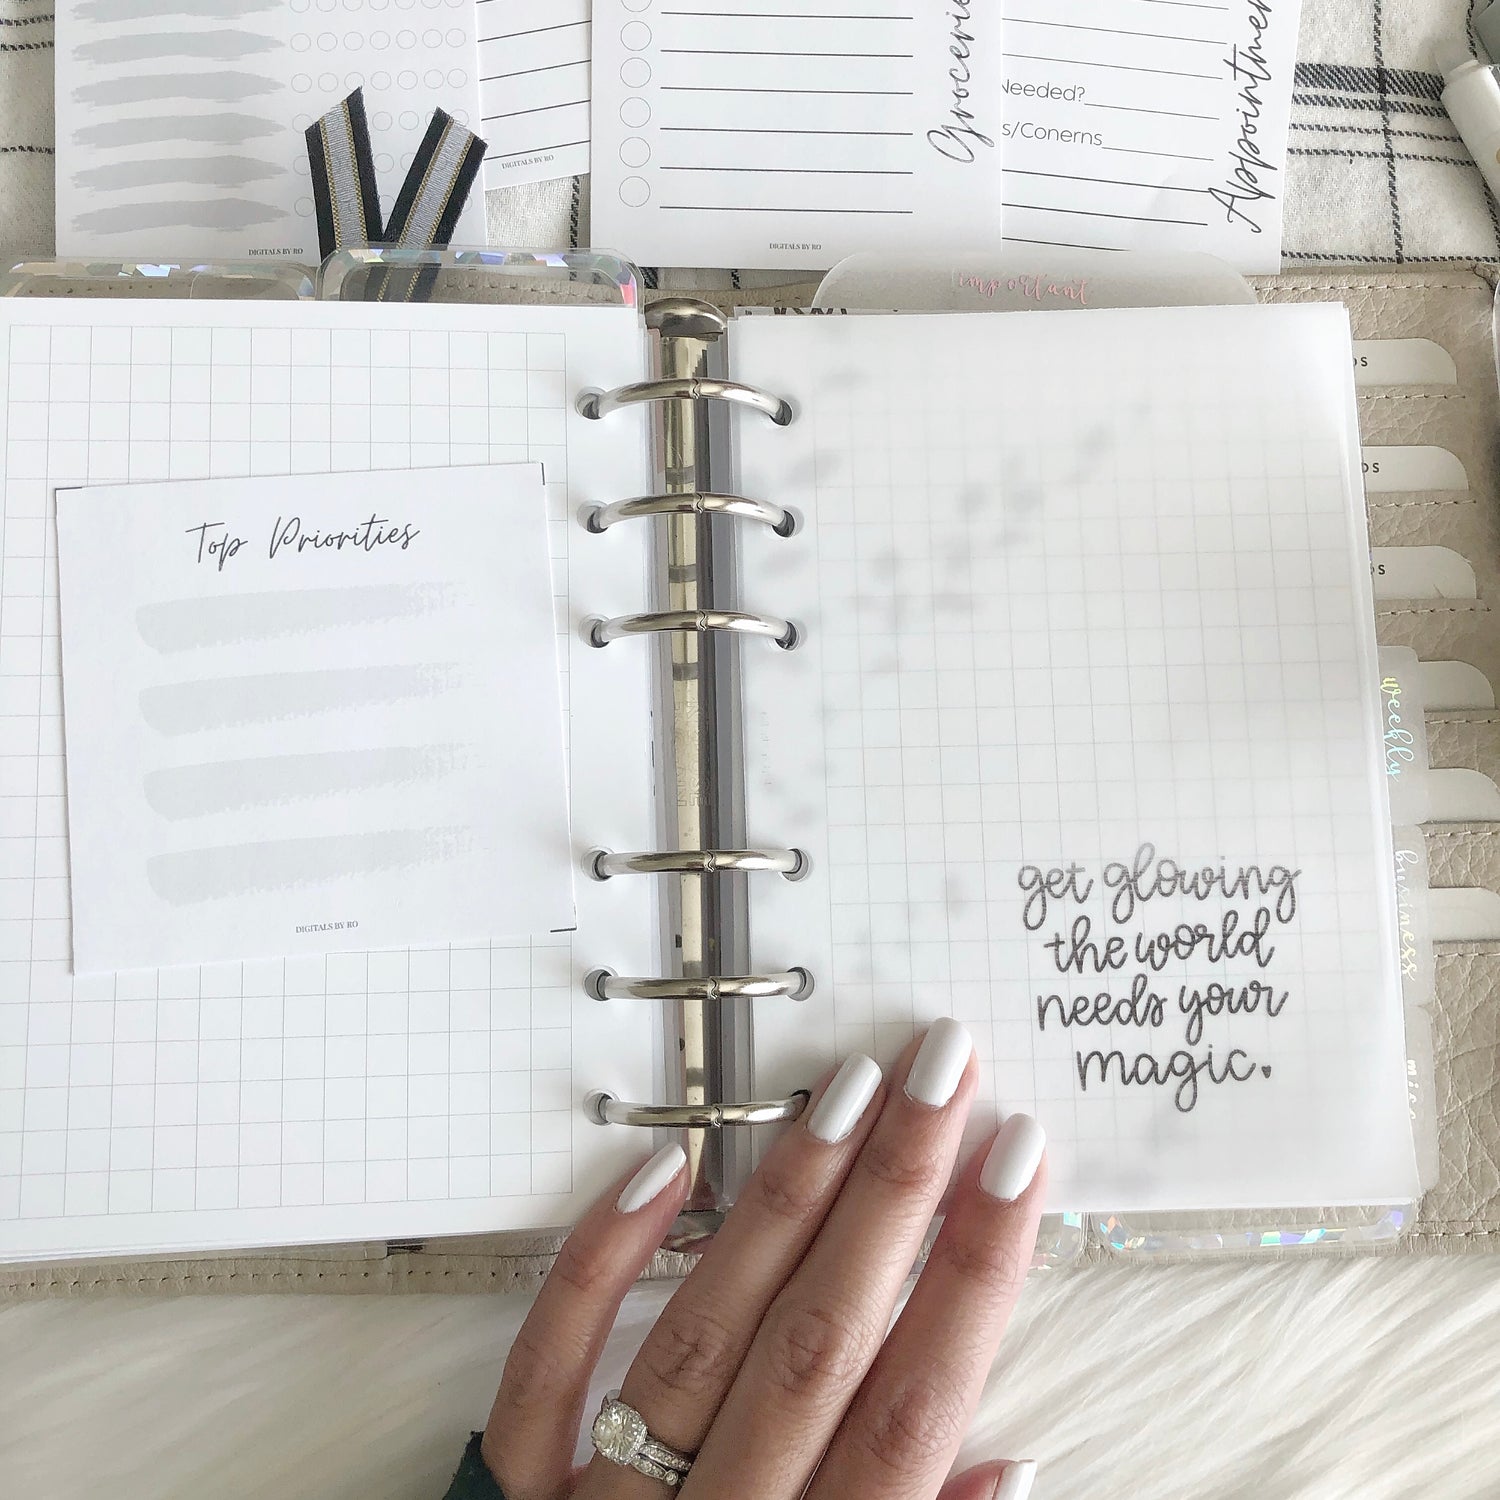 DIGITALS BY RO
DIGITALS BY RO
Groceries
DIGITALS BY RO
Needed?
s/Conerns
Appointment
important
Top Priorities
DIGITALS BY RO
get glowing
the world
needs your
magic.
weekly
business
misc